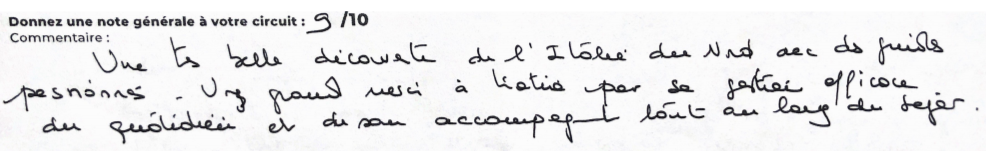 Donnez une note générale à votre circuit : 9 /10
Commentaire :
Une ts belle découverte de l'Italie du Nord avec des guides
passionnés. Un grand merci à Katia par sa gestion efficace
du quotidien et de son accompagnt tout au long du séjour.